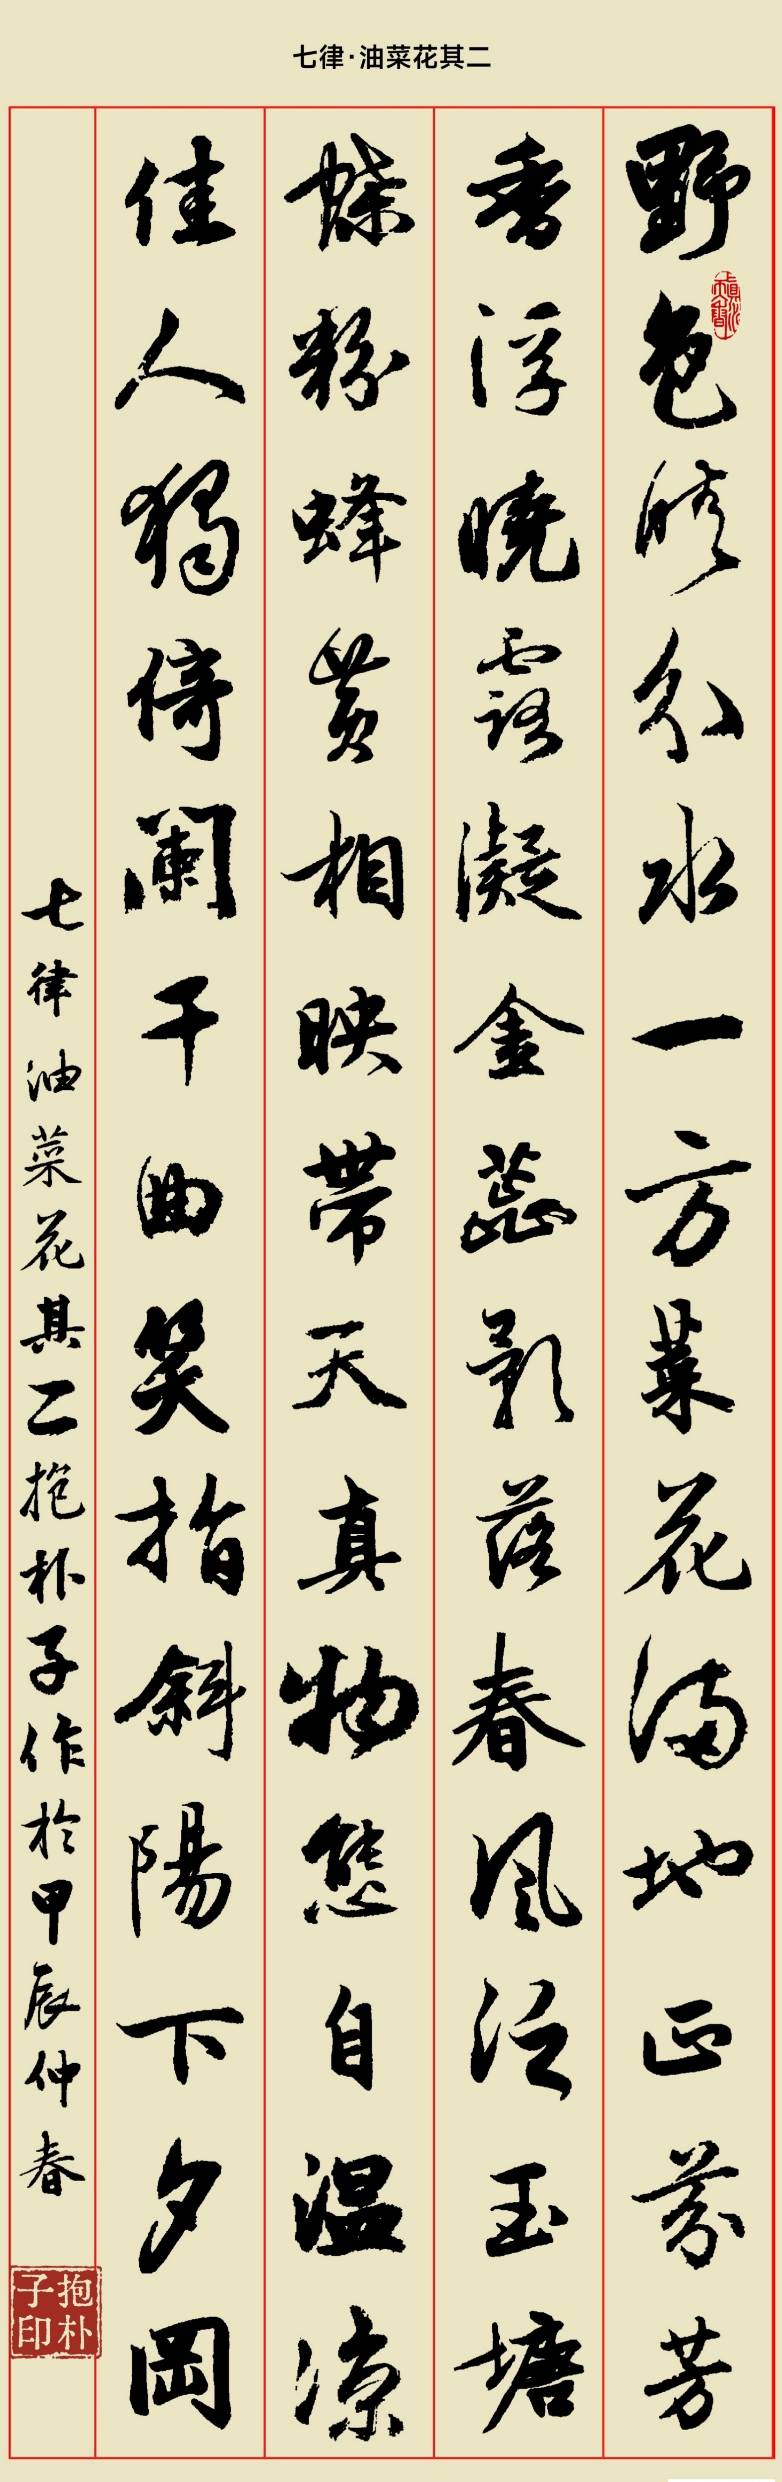 七律·油菜花其二
野色晴分水一方菜花滿地正芬芳
香浮曉露凝金蕊影落春風泛玉塘
蝶粉蜂黄相映帶天真物態自温涼
佳人獨倚闌干曲笑指斜陽下夕岡
七律油菜花其二抱朴子作於甲辰仲春
抱朴子印